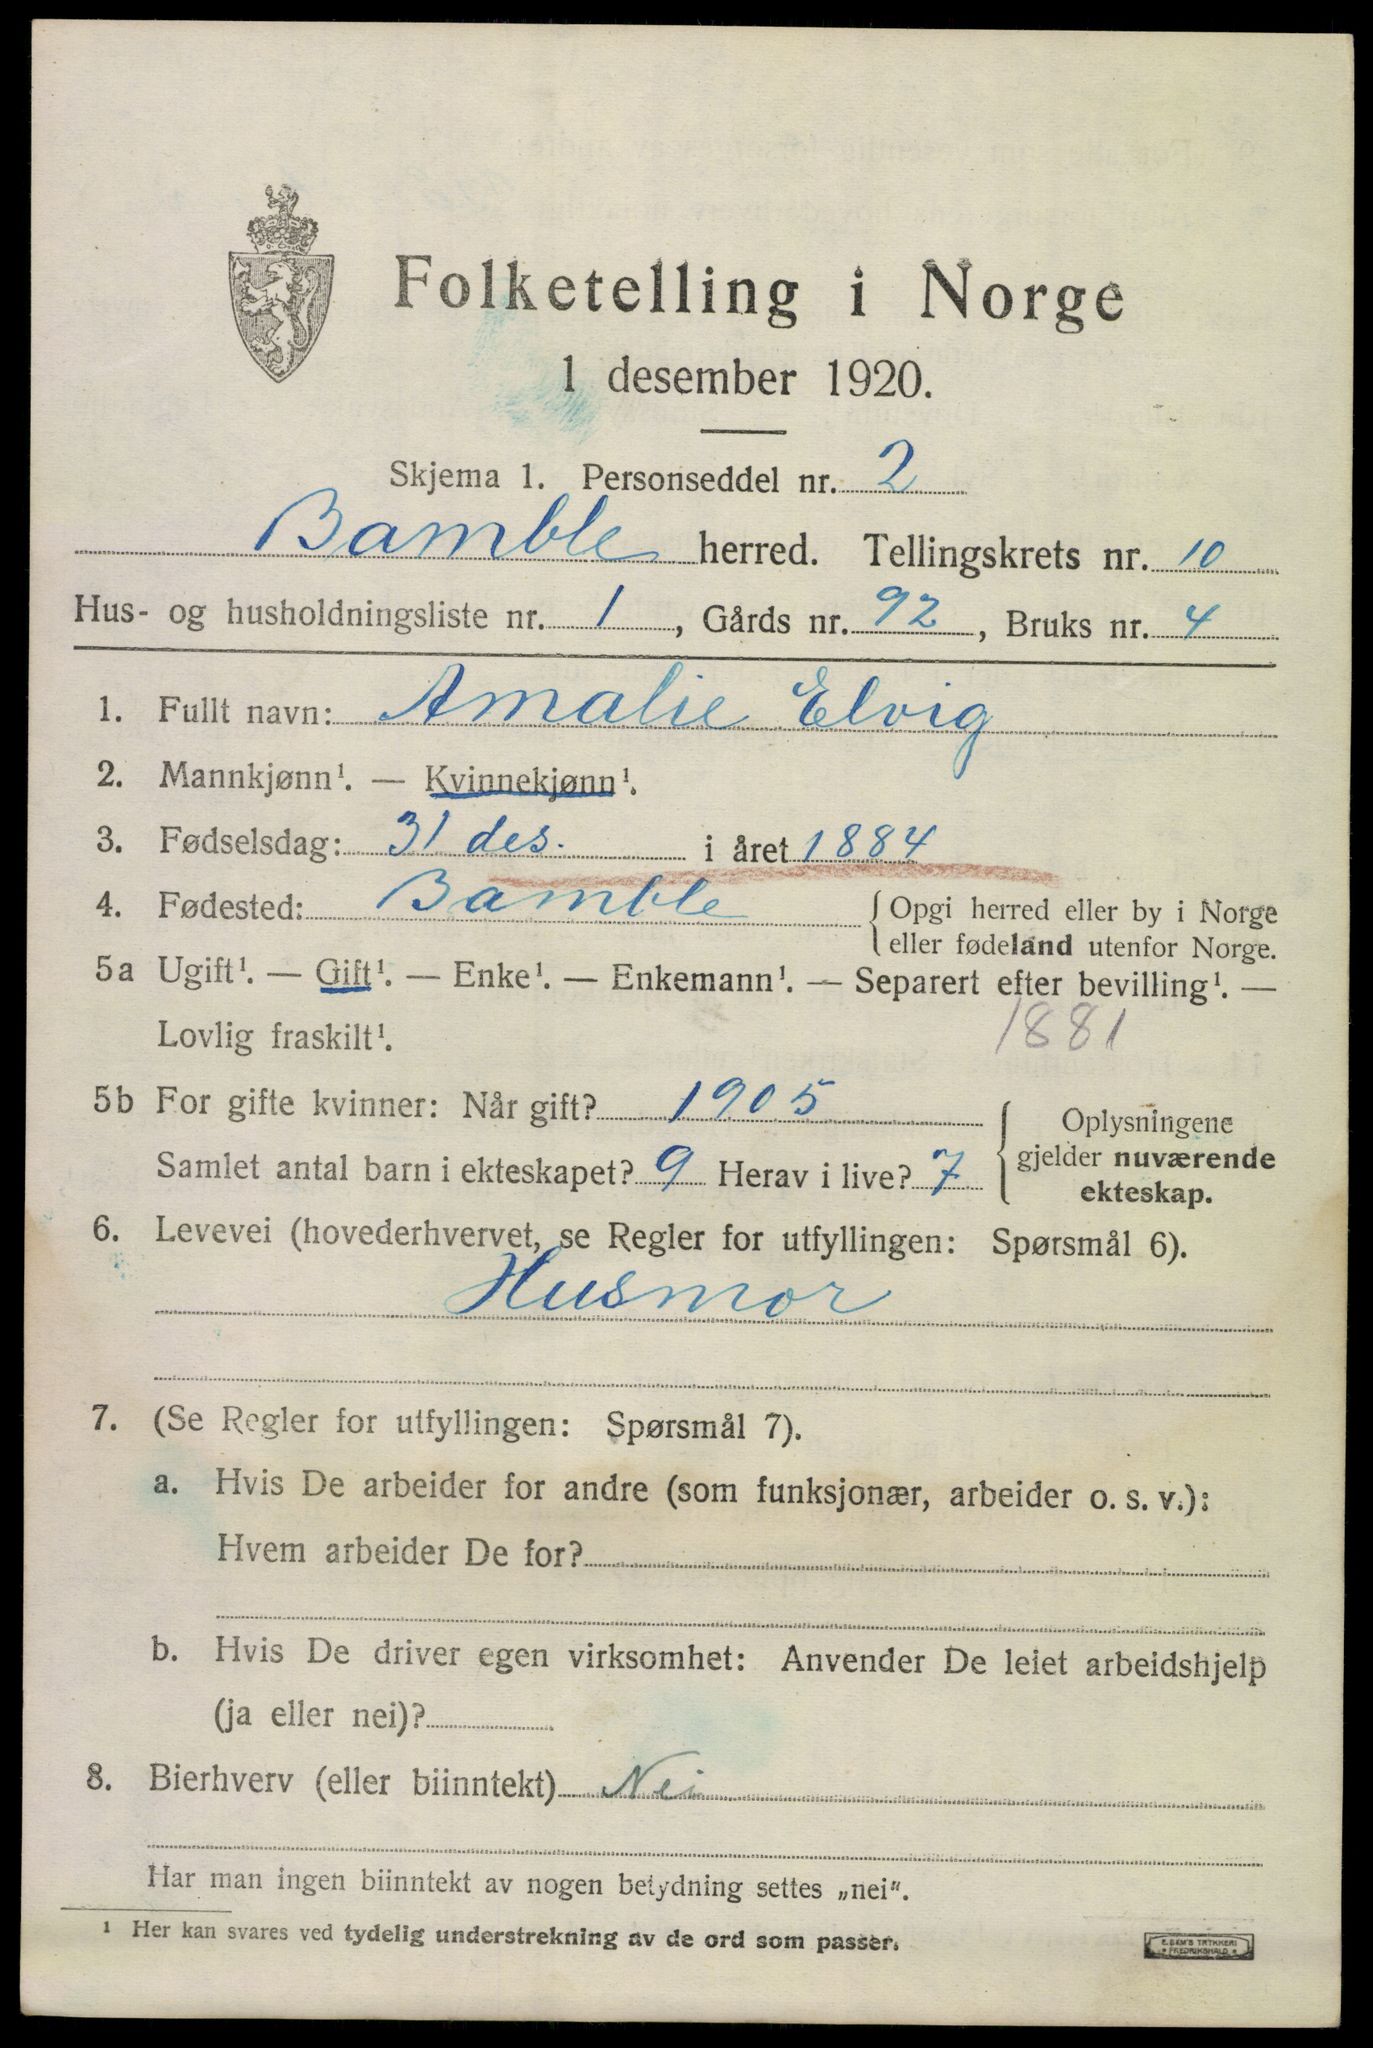 Folketelling i Norge
1 desember 1920.
Skjema 1. Personseddel nr. 2
Bamble herred. Tellingskrets nr. 10
Hus- og husholdningsliste nr. 1, Gårds nr. 92, Bruks nr. 4
1. Fullt navn: Amalie Elvig
2. Mannkjønn¹. — Kvinnekjønn¹.
3. Fødselsdag: 31 des. i året 1884
4. Fødested: Bamble {Opgi herred eller by i Norge
eller fødeland utenfor Norge.
5a Ugift¹. — Gift¹. — Enke¹. — Enkemann¹. — Separert efter bevilling¹. —
Lovlig fraskilt¹. 1881
5b For gifte kvinner: Når gift? 1905
Samlet antal barn i ekteskapet? 9 Herav i live? 7
{Oplysningene
gjelder nuværende
ekteskap.
6. Levevei (hovederhvervet, se Regler for utfyllingen: Spørsmål 6).
Husmor
7. (Se Regler for utfyllingen: Spørsmål 7).
a. Hvis De arbeider for andre (som funksjonær, arbeider o. s. v.):
Hvem arbeider De for?
b. Hvis De driver egen virksomhet: Anvender De leiet arbeidshjelp
(ja eller nei)?
8. Bierhverv (eller biinntekt) Nei
Har man ingen biinntekt av nogen betydning settes „nei“.
¹ Her kan svares ved tydelig understrekning av de ord som passer.
E. SEM'S TRYKKERI
FREDRIKSHALD